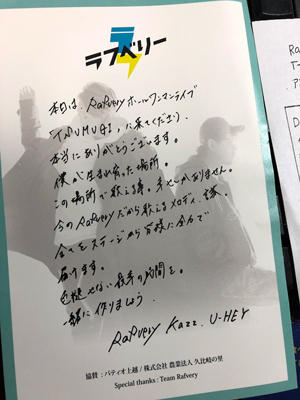 ラフベリー
本日は、Rafveryホールワンマンライブ
に来てくださり
本当にありがとうございます。
僕が生まれ育った場所。
この場所で歌える事、幸せしかありません。
今のRafveryだから歌えるメロディ、詩、
全てをステージから皆様に全力で
届けます。
色褪せない最幸の時間を。
一緒に作りましょう。
Rafvery Kazz. U-HEY
協賛：パティオ上越 / 株式会社 農業法人 久比岐の里
Special thanks : Team Rafvery
Ra
T-